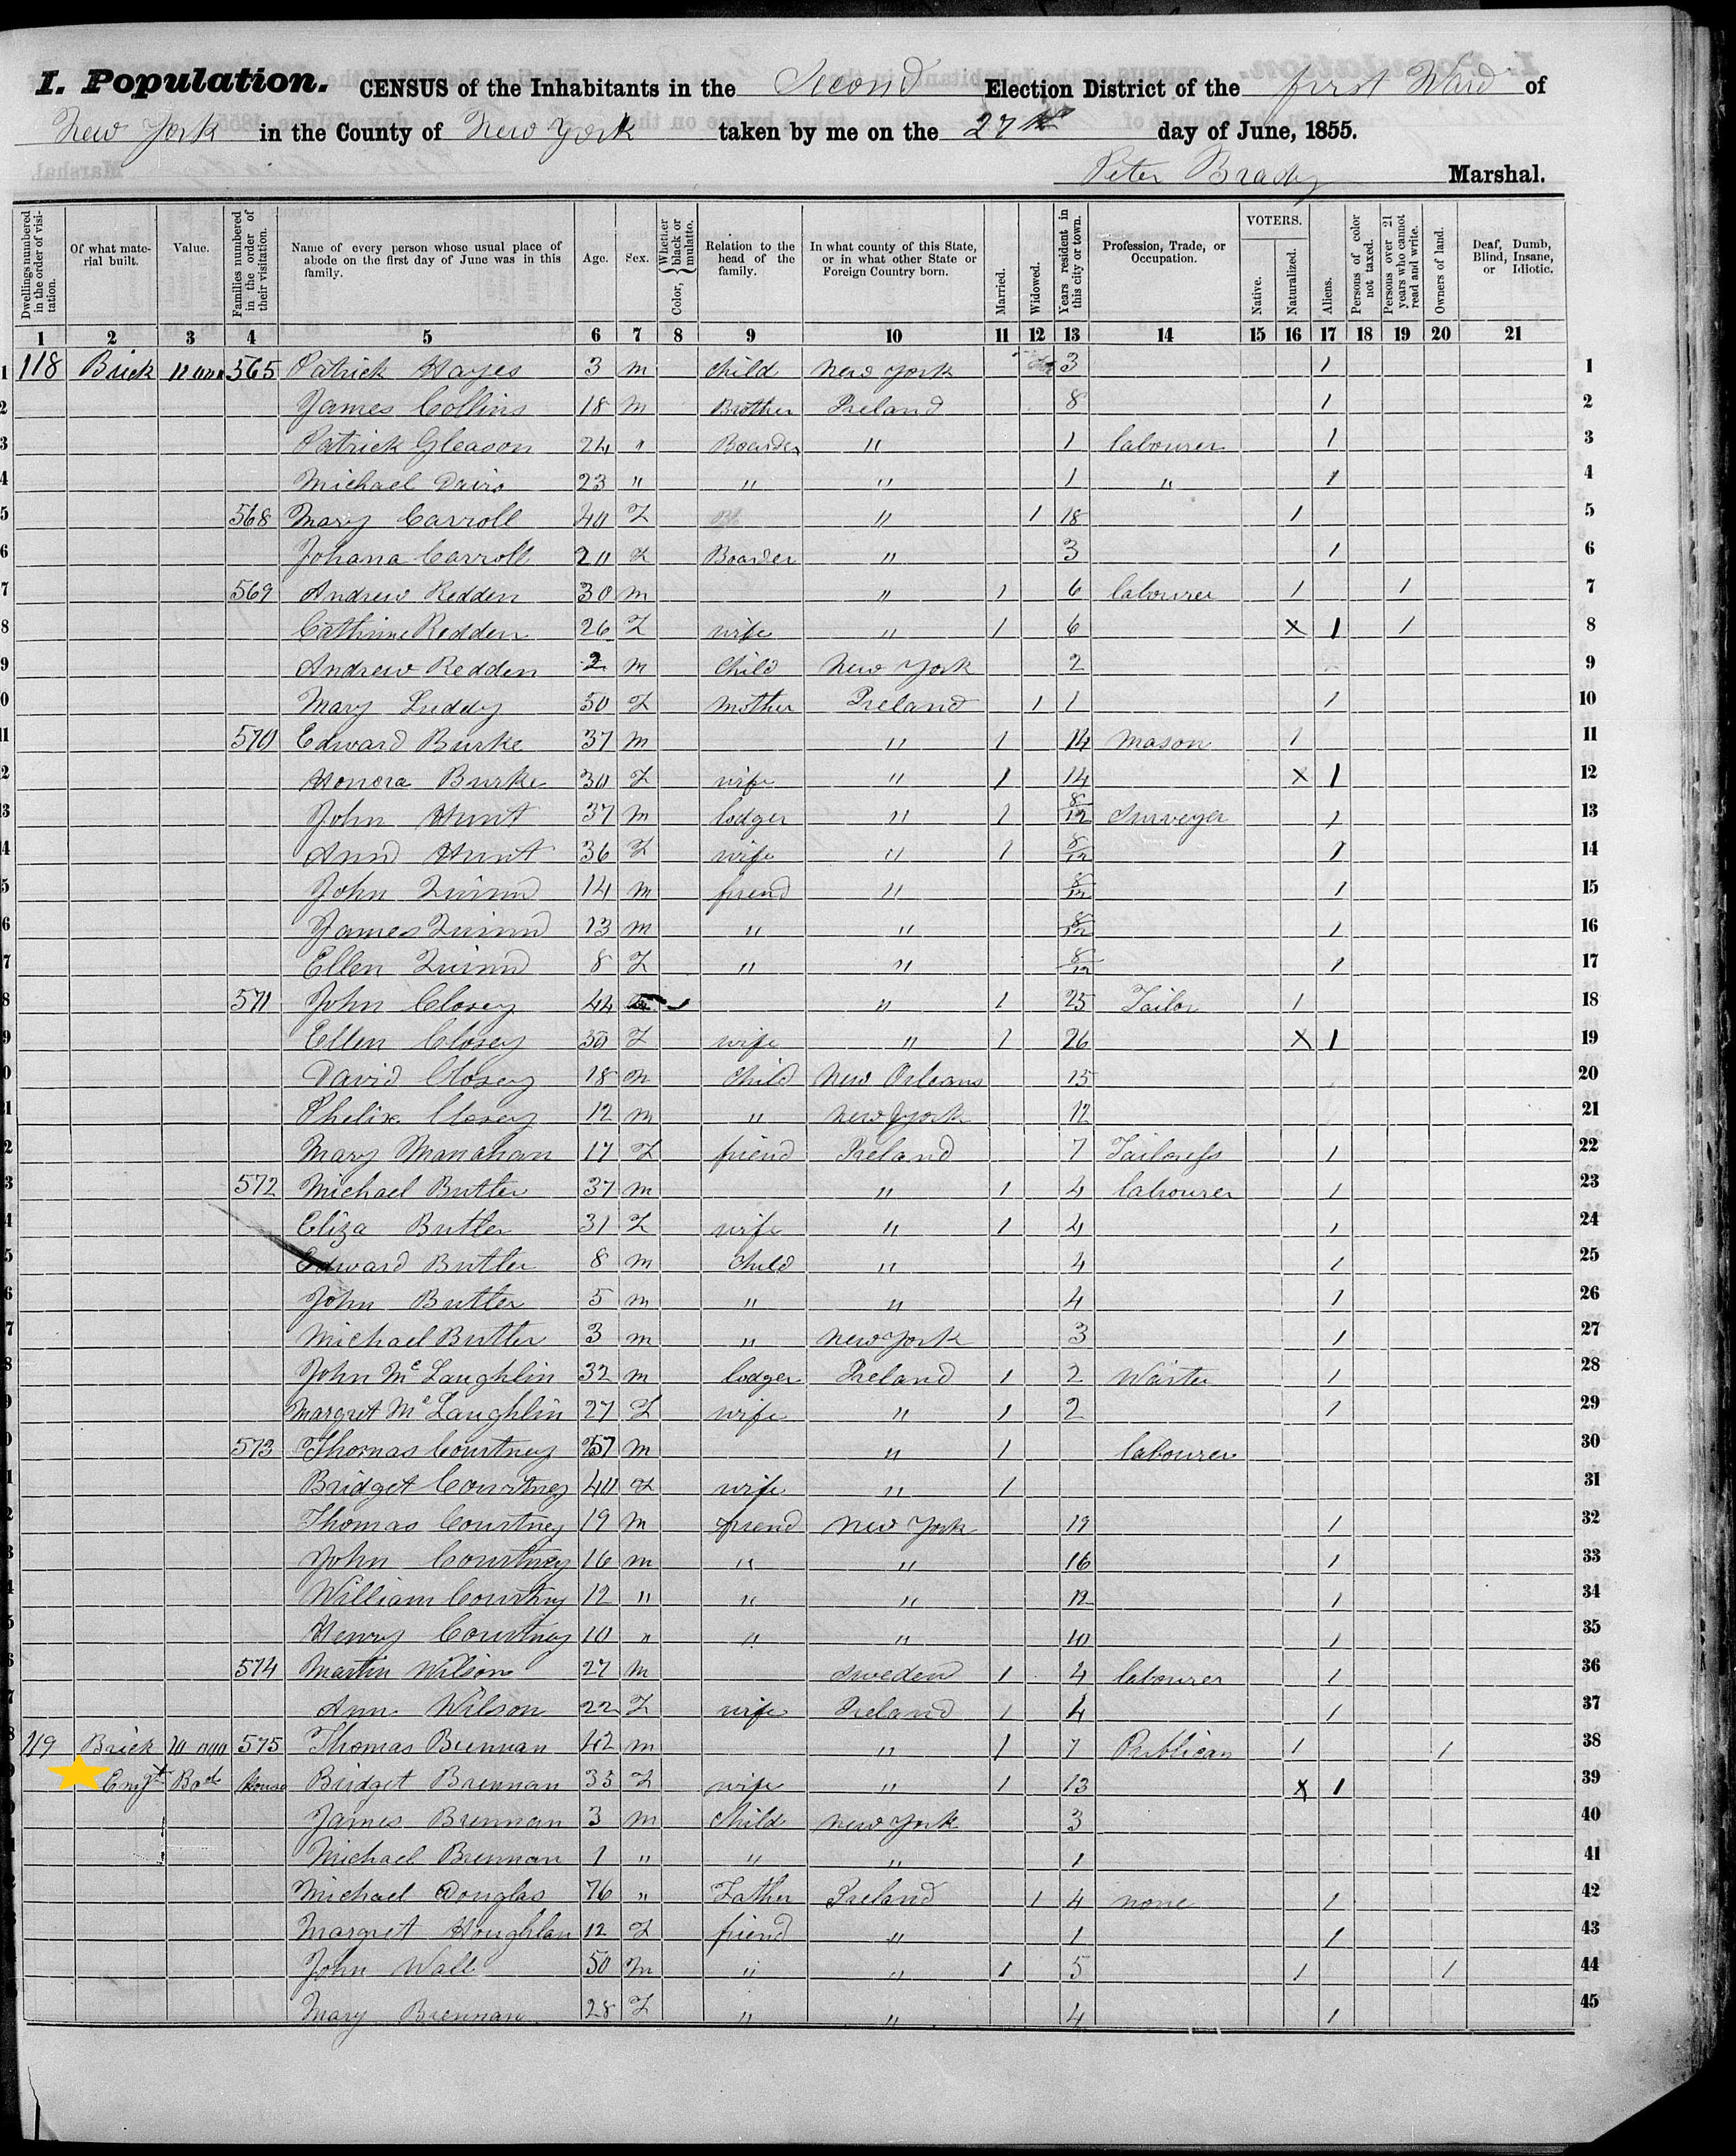 I. Population. CENSUS of the Inhabitants in the Second Election District of the first Ward of
New York in the County of New York taken by me on the 27th day of June, 1855.
Peter Brady Marshal.
Dwellings numbered in the order of visitation. Of what material built. Value. Families numbered in the order of their visitation. Name of every person whose usual place of abode on the first day of June was in this family. Age. Sex. Color, Whether black or mulatto. Relation to the head of the family. In what county of this State, or in what other State or Foreign Country born. Married. Widowed. Years resident in this city or town. Profession, Trade, or Occupation. VOTERS. Native. Naturalized. Aliens. Persons of color not taxed. Persons over 21 years who cannot read and write. Owners of land. Deaf, Dumb, Blind, Insane, or Idiotic.
1 2 3 4 5 6 7 8 9 10 11 12 13 14 15 16 17 18 19 20 21
1 118 Brick 565 Patrick Hayes 3 m child New York 3 1 1
2 James Collins 18 m Brother Ireland 8 1 2
3 Patrick Gleason 24 " Boarder " 1 labourer 1 3
4 Michael 23 " " " 1 " 1 4
5 568 Mary Carroll 40 F " 1 18 1 5
6 Johana Carroll 20 F Boarder " 3 1 6
7 569 Andrew Redden 30 m " 1 6 labourer 1 1 7
8 Cathrine Redden 26 F wife " 1 6 x 1 1 8
9 Andrew Redden 2 m Child New York 2 9
10 Mary Luddy 50 F mother Ireland 1 1 1 10
11 570 Edward Burke 37 m " 1 14 mason 1 11
12 Honora Burke 30 F wife " 1 14 x 1 12
13 John Hunt 37 m lodger " 1 8/12 Surveyer 1 13
14 Ann Hunt 36 F wife " 1 8/12 1 14
15 John Quinn 14 m friend " 8/12 1 15
16 James Quinn 13 m " " 8/12 1 16
17 Ellen Quinn 8 F " " 8/12 1 17
18 571 John Closey 44 " 1 25 Tailor 1 18
19 Ellen Closey 30 F wife " 1 26 x 1 19
20 David Closey 18 m Child New Orleans 15 20
21 Phelix Closey 12 m " New York 12 21
22 Mary Manahan 17 F friend Ireland 7 Tailoress 1 22
23 572 Michael Butler 37 m " 1 4 labourer 1 23
24 Eliza Butler 31 F wife " 1 4 1 24
25 Edward Butler 8 m Child " 4 1 25
26 John Butler 5 m " " 4 1 26
27 Michael Butler 3 m " New York 3 1 27
28 John McLaughlin 32 m lodger Ireland 1 2 Waiter 1 28
29 Margret McLaughlin 27 F wife " 1 2 1 29
30 573 Thomas Courtney m " 1 labourer 30
31 Bridget Courtney 40 F wife " 1 31
32 Thomas Courtney 19 m friend New York 19 1 32
33 John Courtney 16 m " " 16 1 33
34 William Courtney 12 " " " 12 1 34
35 Henry Courtney 10 " " " 10 1 35
36 574 Martin Wilson 27 m Sweden 1 4 labourer 1 36
37 Ann Wilson 22 F wife Ireland 1 4 1 37
38 119 Brick 575 Thomas Brennan 42 m " 1 7 Publican 1 1 38
39 Emigt Bode House Bridget Brennan 35 F wife " 1 13 x 1 39
40 James Brennan 3 m Child New York 3 40
41 Michael Brennan 1 " " " 1 41
42 Michael Douglas 76 " Father Ireland 1 4 none 1 42
43 Margret Houghlan 12 F friend " 1 1 43
44 John Wall 50 m " " 1 5 1 1 44
45 Mary Brennan 28 F " " 4 1 45